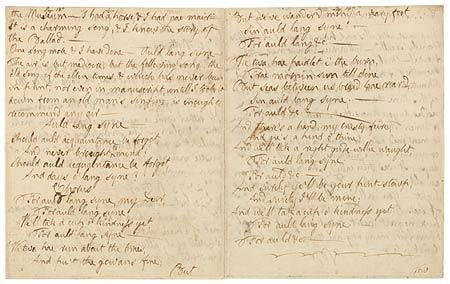 the Museum — I had a horse & I had nae mair —
it is a charming song, & I know the story of
the Ballad.
One song more & I have done — Auld lang syne —
The air is but mediocre but the following song, the
old song of the olden times, & which has never been
in print, nor even in manuscript, untill I took it
down from an old man's singing, is enough to
recommend any air —
Auld lang syne —
Should auld acquaintance be forgot
And never brought to mind?
Should auld acquaintance be forgot
And days o' lang syne?
Chorus
For auld lang syne, my Dear,
For auld lang syne,
We'll tak a cup o' kindness yet
For auld lang syne —
We twa hae run about the braes,
And pu't the gowans fine,
But
But we've wander'd mony a weary foot
Sin auld lang syne.
For auld &c —
We twa hae paidl't i' the burn,
Frae mornin sun till dine
But seas between us braid hae roar'd
Sin auld lang syne —
For auld &c —
And there's a hand, my trusty fiere,
And gie's a hand o' thine
And we'll tak a right gude-willie waught
For auld lang syne
For auld &c
And surely ye'll be your pint stowp,
And surely I'll be mine;
And we'll tak a cup o' kindness yet
For auld lang syne
For auld &c —